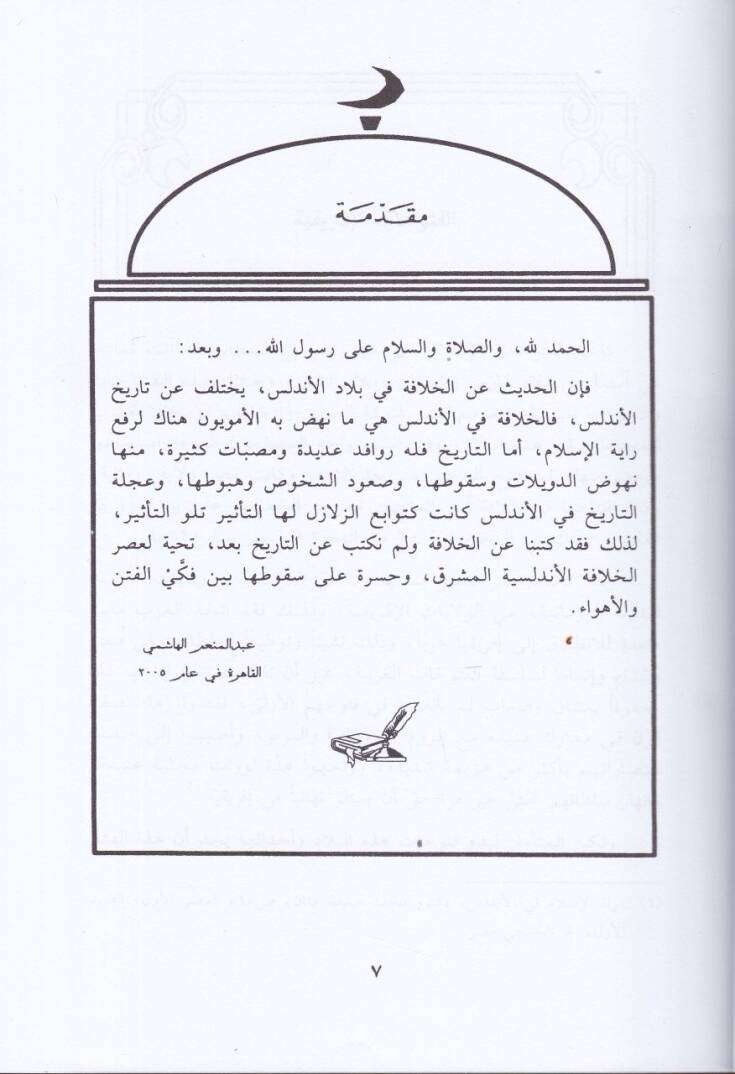 مقدّمة
الحمد لله، والصلاة والسلام على رسول الله... وبعد:
فإن الحديث عن الخلافة في بلاد الأندلس، يختلف عن تاريخ
الأندلس، فالخلافة في الأندلس هي ما نهض به الأمويون هناك لرفع
راية الإسلام، أما التاريخ فله روافد عديدة ومصبّات كثيرة، منها
نهوض الدويلات وسقوطها، وصعود الشخوص وهبوطها، وعجلة
التاريخ في الأندلس كانت كتوابع الزلازل لها التأثير تلو التأثير،
لذلك فقد كتبنا عن الخلافة ولم نكتب عن التاريخ بعد، تحية لعصر
الخلافة الأندلسية المشرق، وحسرة على سقوطها بين فكَّيْ الفتن
والأهواء.
عبدالمنعم الهاشمي
القاهرة في عام ٢٠٠٥
٧